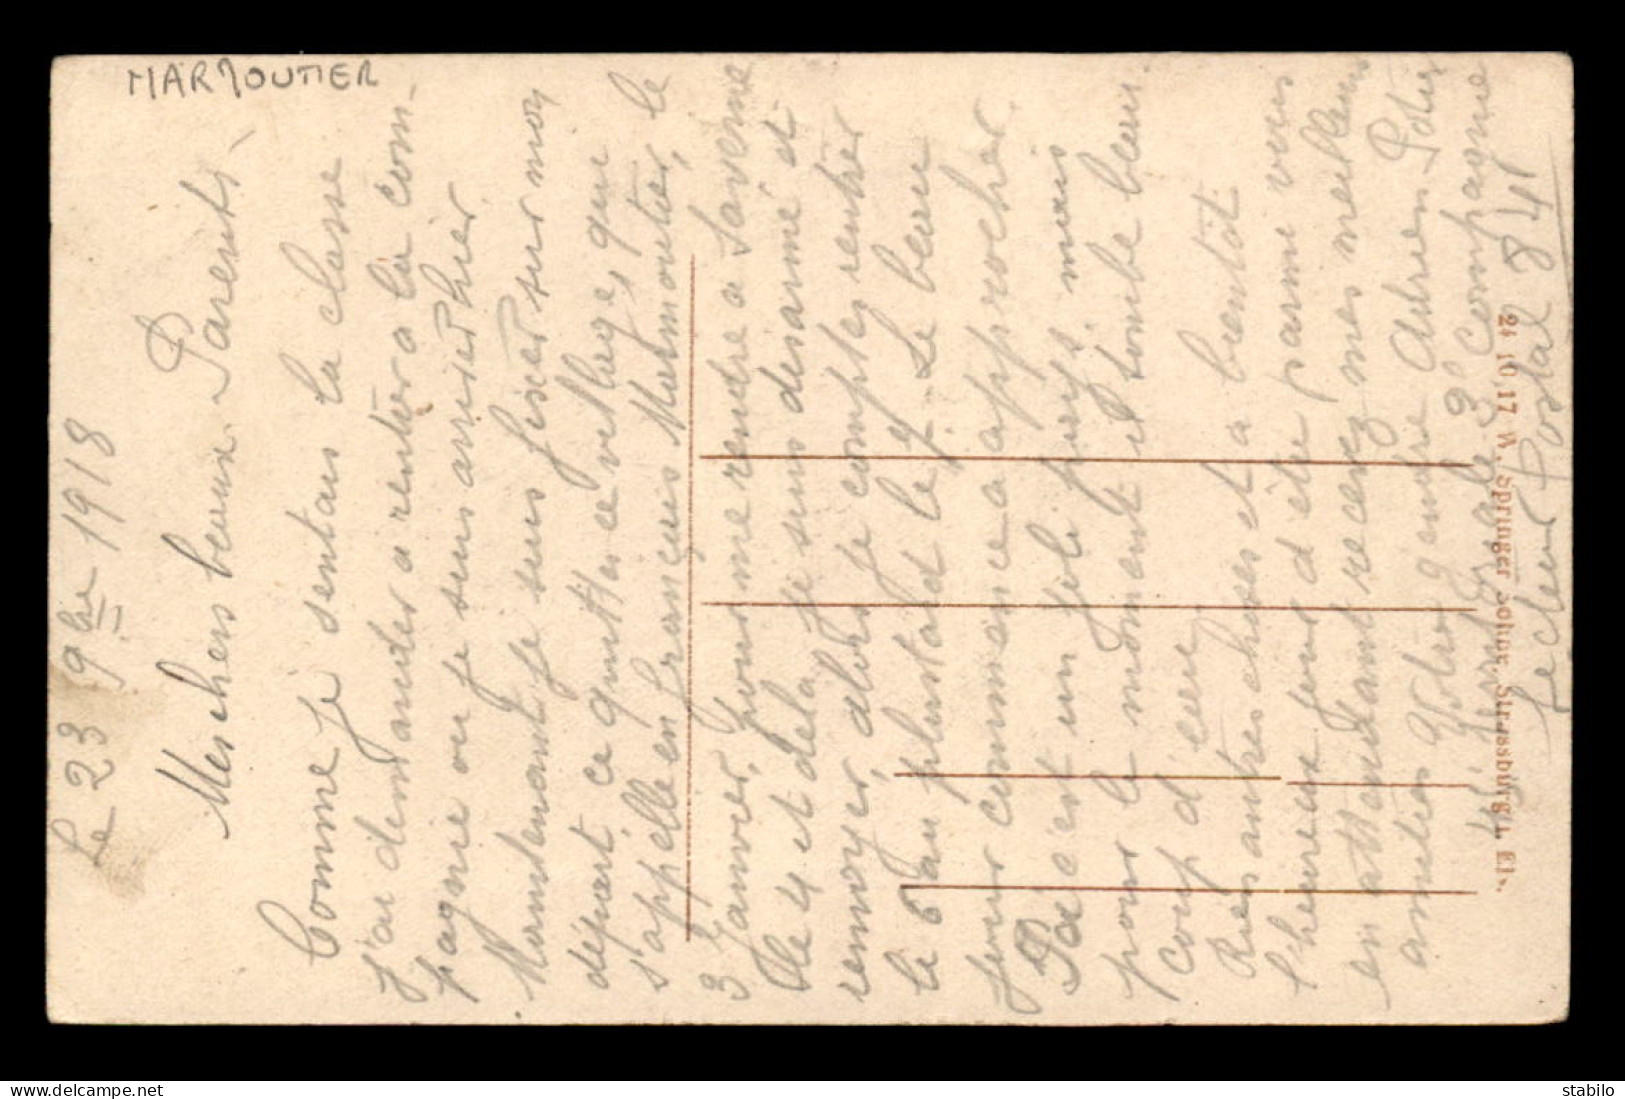 MARMOUTIER
Le 23 9bre 1918
Mes chers beaux Parents,
Comme je sentais la classe
j'ai demander a rentrer a la com-
pagnie ou je suis arriver hier
Maintenant je suis fixer sur mon
départ ce quitter ce village, que
s'appelle en français Marmoutier, le
3 Janvier, pour me rendre a Saverne
le 4 et de la je suis désarmé et
renvoyer, alors je comptes rentrer
le 6 au plus tard le 7. Le beau
jour commence a approcher.
Ici c'est un joli pays, mais
pour le moment il tombe beau
coup d'eau
Rien autres choses et a bientôt
l'heureux jour d'être parmi vous
en attendant recevez mes meilleurs
amities Votre gendre Adrien
3e Compagnie
Secteur Postal 84
24 10, 17 W. Springer Söhne, Strassburg i. Els.